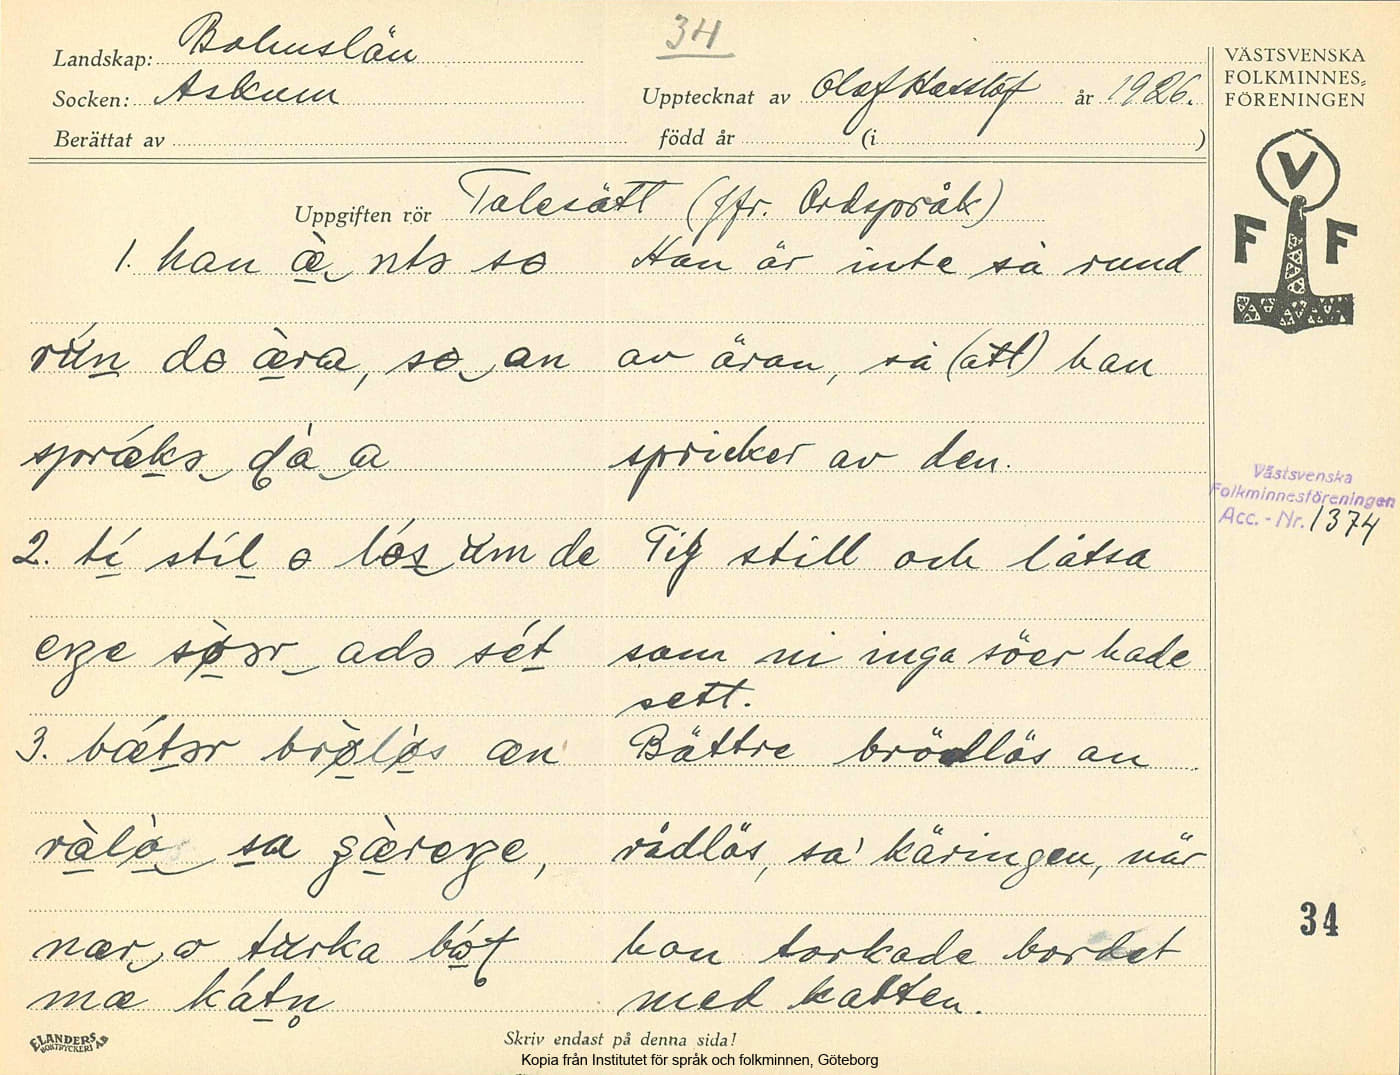 34
Landskap: Bohuslän
Socken: Askum
Upptecknat av Olof Hasslöf år 1926.
Berättat av
född år (i )
VÄSTSVENSKA
FOLKMINNES=
FÖRENINGEN
V
F F
Uppgiften rör Talesätt (jfr. Ordspråk)
1. han æ̀ ntə so Han är inte så rund
rún do æ̀ra, so an av äran, så (att) han
sprǽkə a spricker av den.
2. tí stíl o lós um de Tig still och låtsa
som ni inga söer hade
adə sét sett.
3. bǽtər brø̀lø̀s æn Bättre brödlös än
rådlös, sa' käringen, när
nær o turka hon torkade bordet
mæ kátn̥ med katten.
Västsvenska
Folkminnesföreningen
Acc. - Nr. 1374
34
ELANDERS
BOKTRYCKERI AB
Skriv endast på denna sida!
Kopia från Institutet för språk och folkminnen, Göteborg